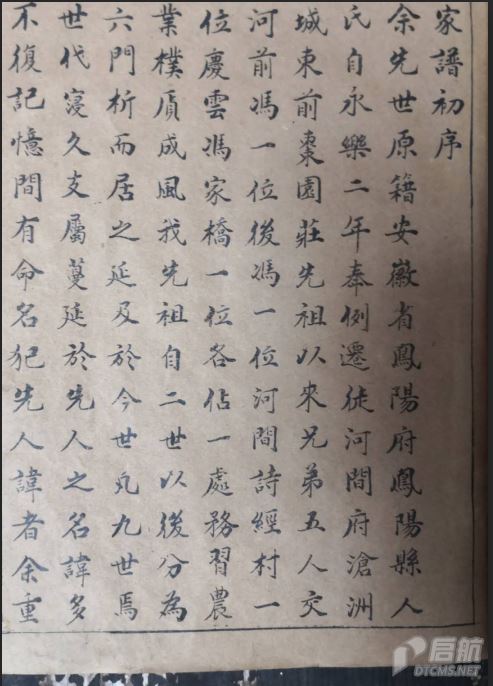 家譜初序
余先世原籍安徽省鳳陽府鳳陽縣人
氏自永樂二年奉例遷徒河間府滄洲
城東前棗園莊先祖以來兄弟五人交
河前馮一位後馮一位河間詩經村一
位慶雲馮家橋一位各佔一處務習農
業樸質成風我先祖自二世以後分為
六門析而居之延及於今世凢九世焉
世代寖久支屬蔓延於先人之名諱多
不復記憶間有命名犯先人諱者余重
启航
DTCMS.NET